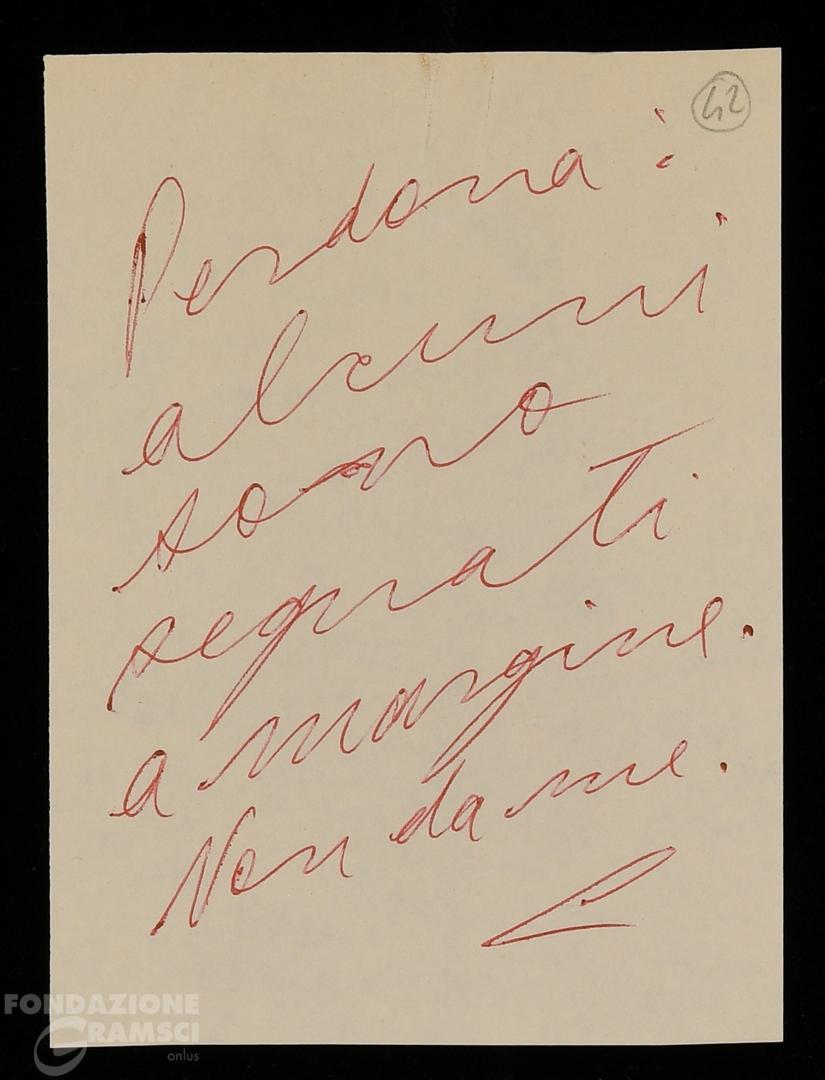 42
Perdona:
alcuni
sono
segnati
a margine.
Non da me.
L
FONDAZIONE
GRAMSCI
onlus